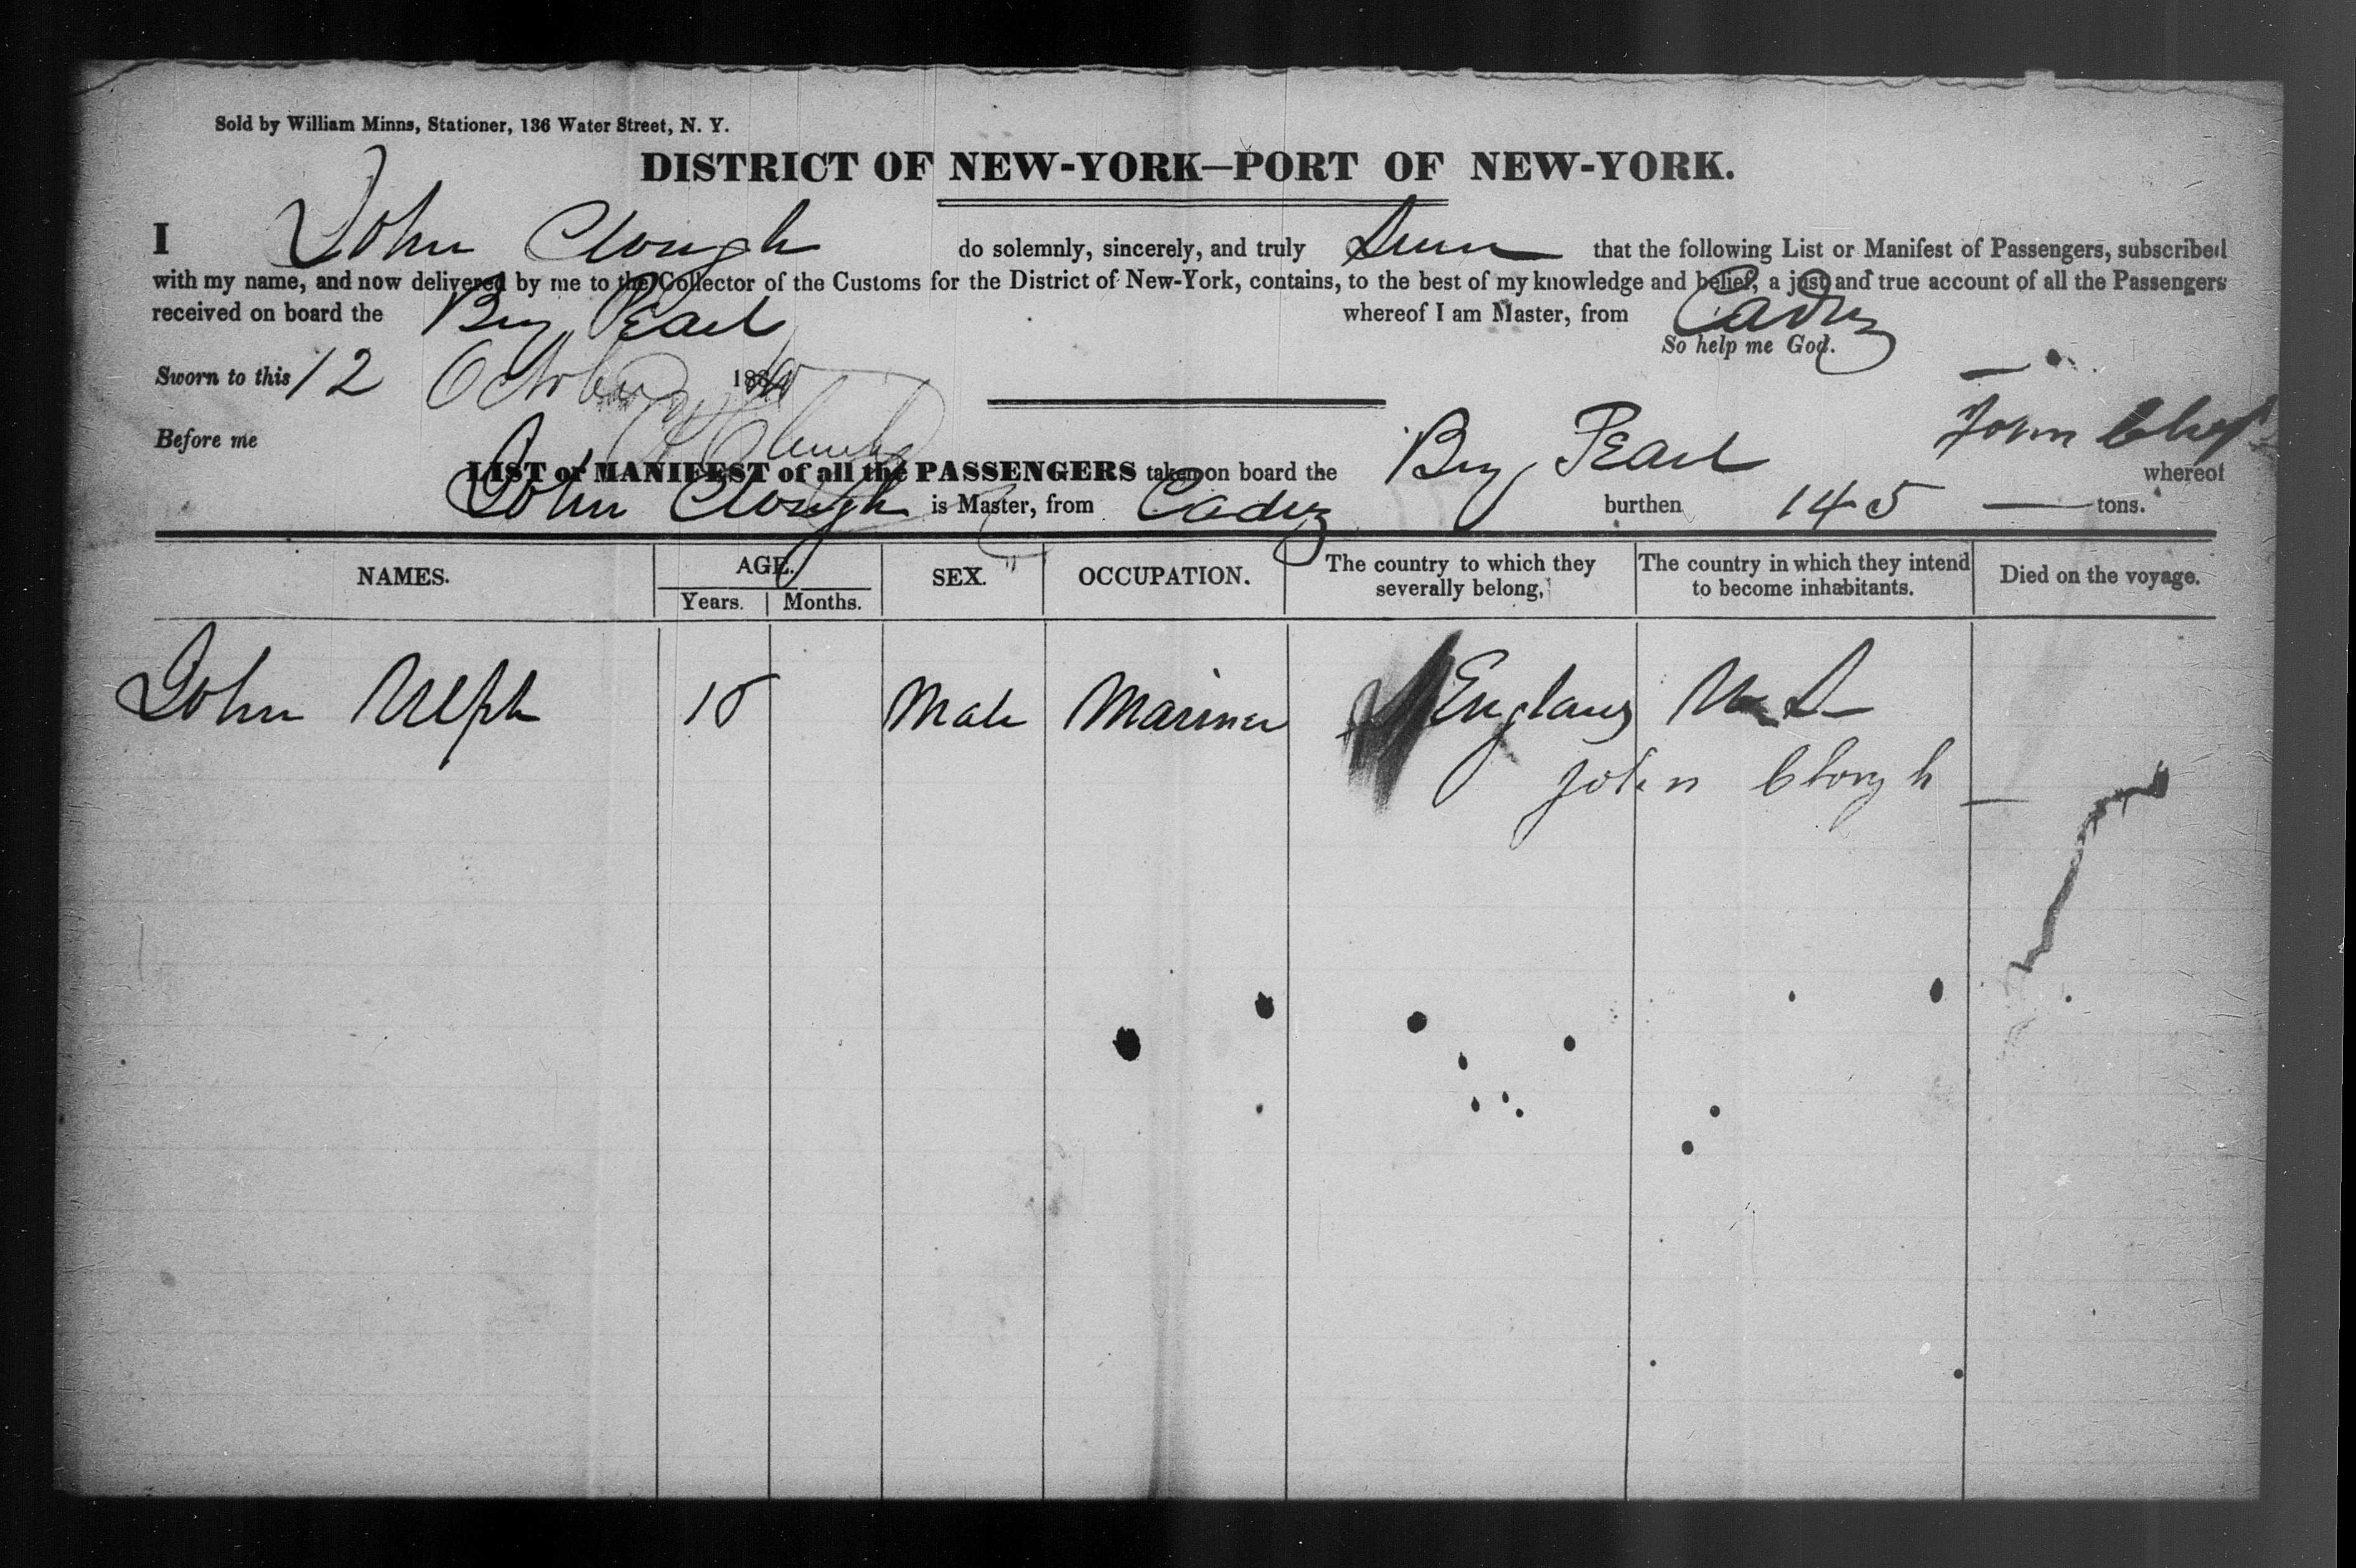 Sold by William Minns, Stationer, 136 Water Street, N. Y.
DISTRICT OF NEW-YORK—PORT OF NEW-YORK.
I John Clough do solemnly, sincerely, and truly that the following List or Manifest of Passengers, subscribed
with my name, and now delivered by me to the Collector of the Customs for the District of New-York, contains, to the best of my knowledge and belief, a just and true account of all the Passengers
received on board the Brig Pearl whereof I am Master, from Cadiz
So help me God.
Sworn to this 12 October
Before me John
LIST or MANIFEST of all the PASSENGERS taken on board the Brig Pearl whereof
John Clough is Master, from Cadiz burthen 145 tons.
NAMES. AGE. SEX. OCCUPATION. The country to which they severally belong, The country in which they intend to become inhabitants. Died on the voyage.
Years. Months.
John Male Mariner England U S
John Clough